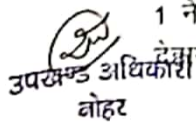 1 ने
देवा
उपखण्ड अधिकारी
नोहर